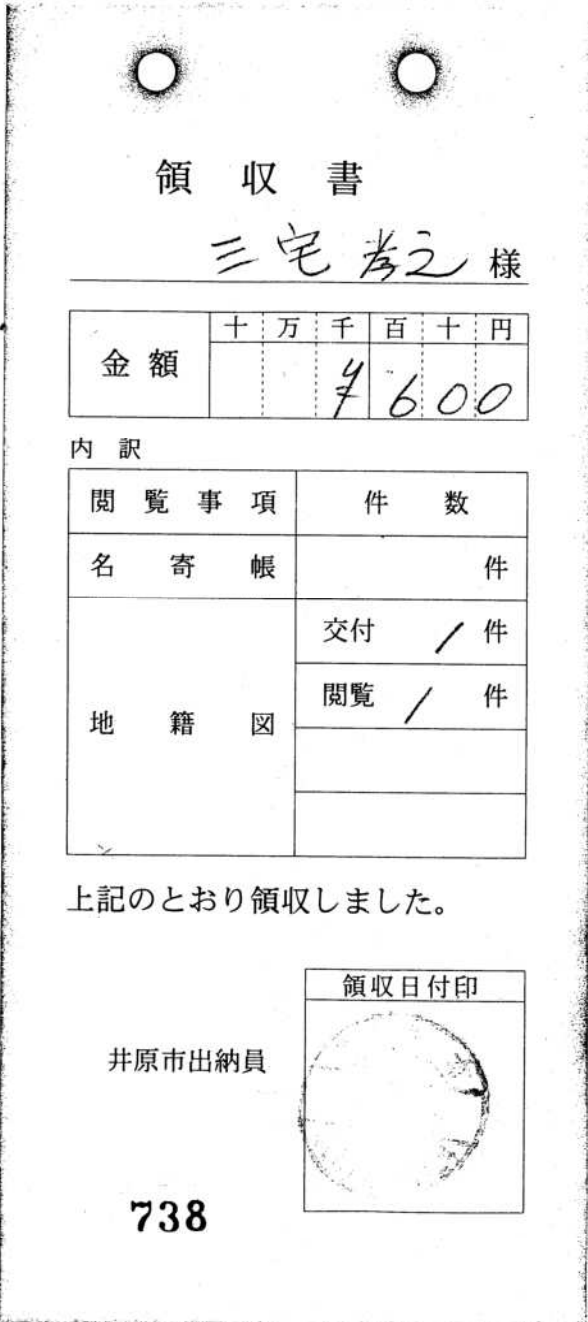 領収書
三宅 孝之 様
金額 十 万 千 百 十 円
¥ 6 0 0
内訳
閲覧事項 件数
名寄帳 件
地籍図 交付 / 件
閲覧 / 件
上記のとおり領収しました。
領収日付印
井原市出納員
738